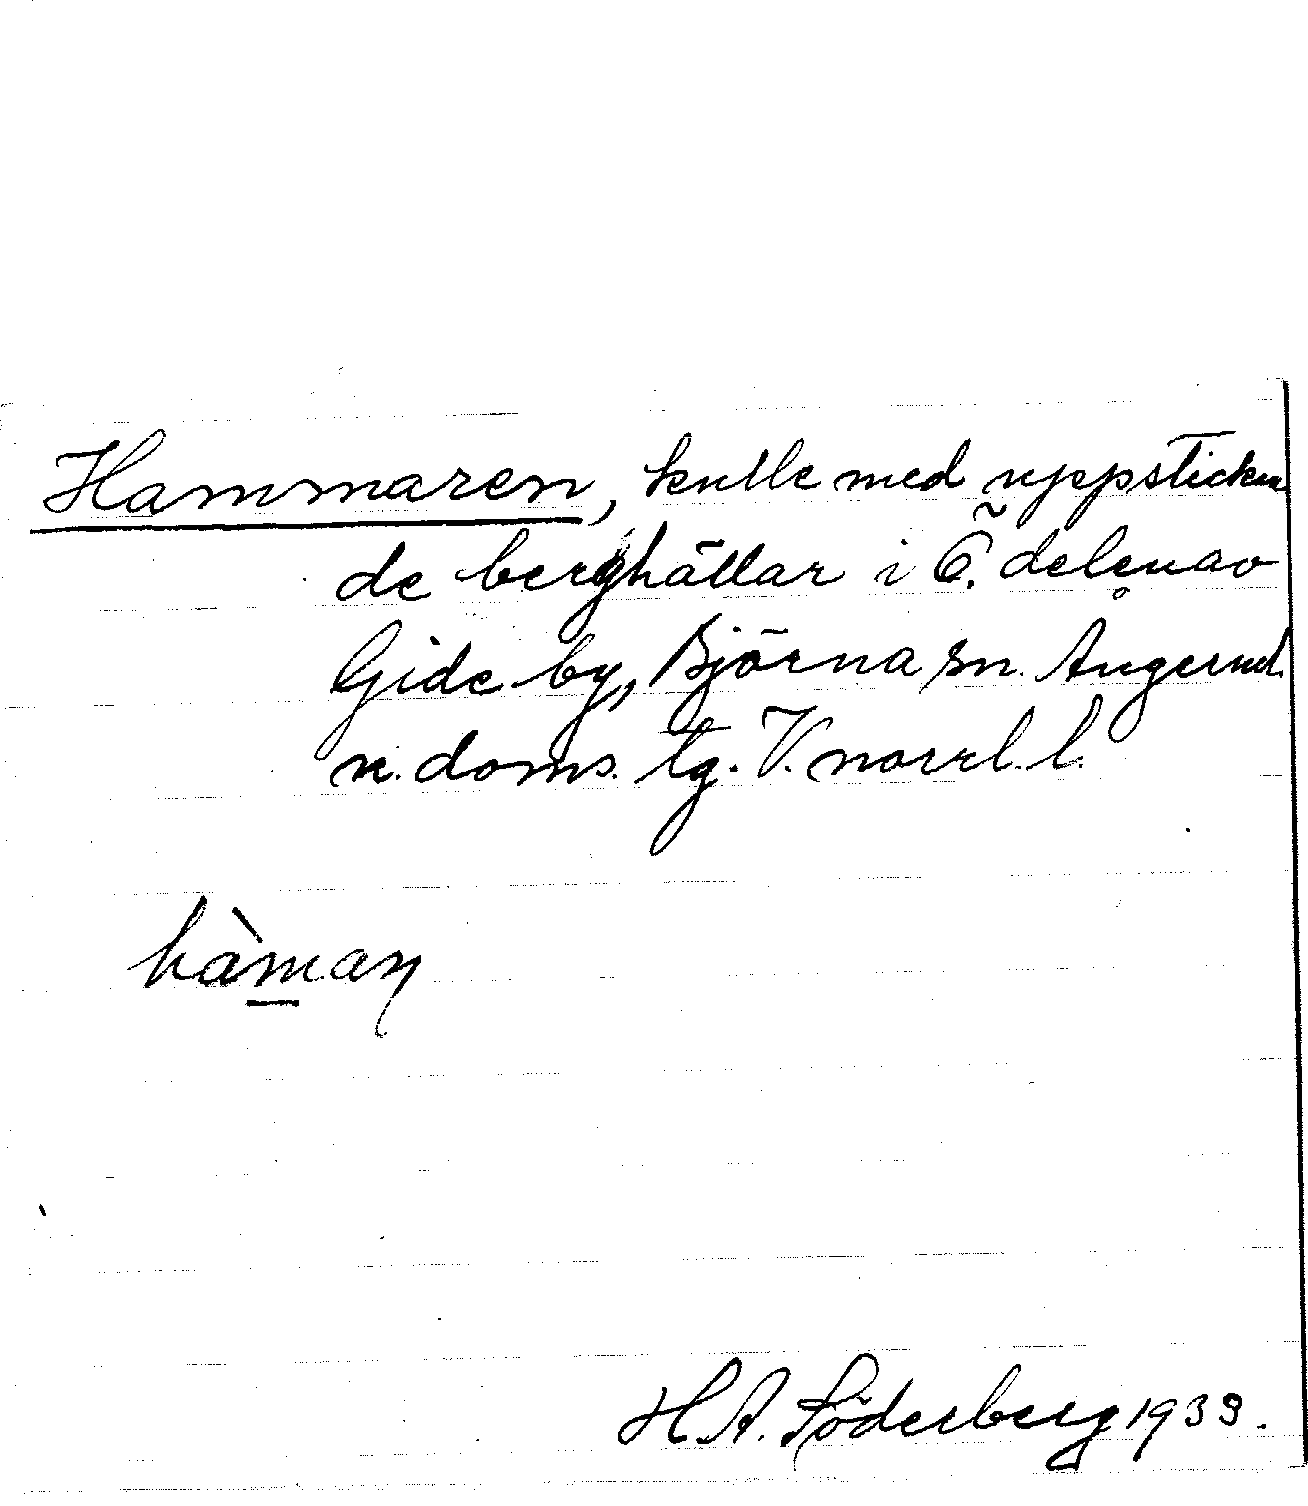 Hammaren, kulle med uppsticken
de berghällar i Ö. delen av
Gide by, Björna sn. Ångermd.
n. doms. tg. V. norrl. l.
hàman
H. A. Söderberg 1933.